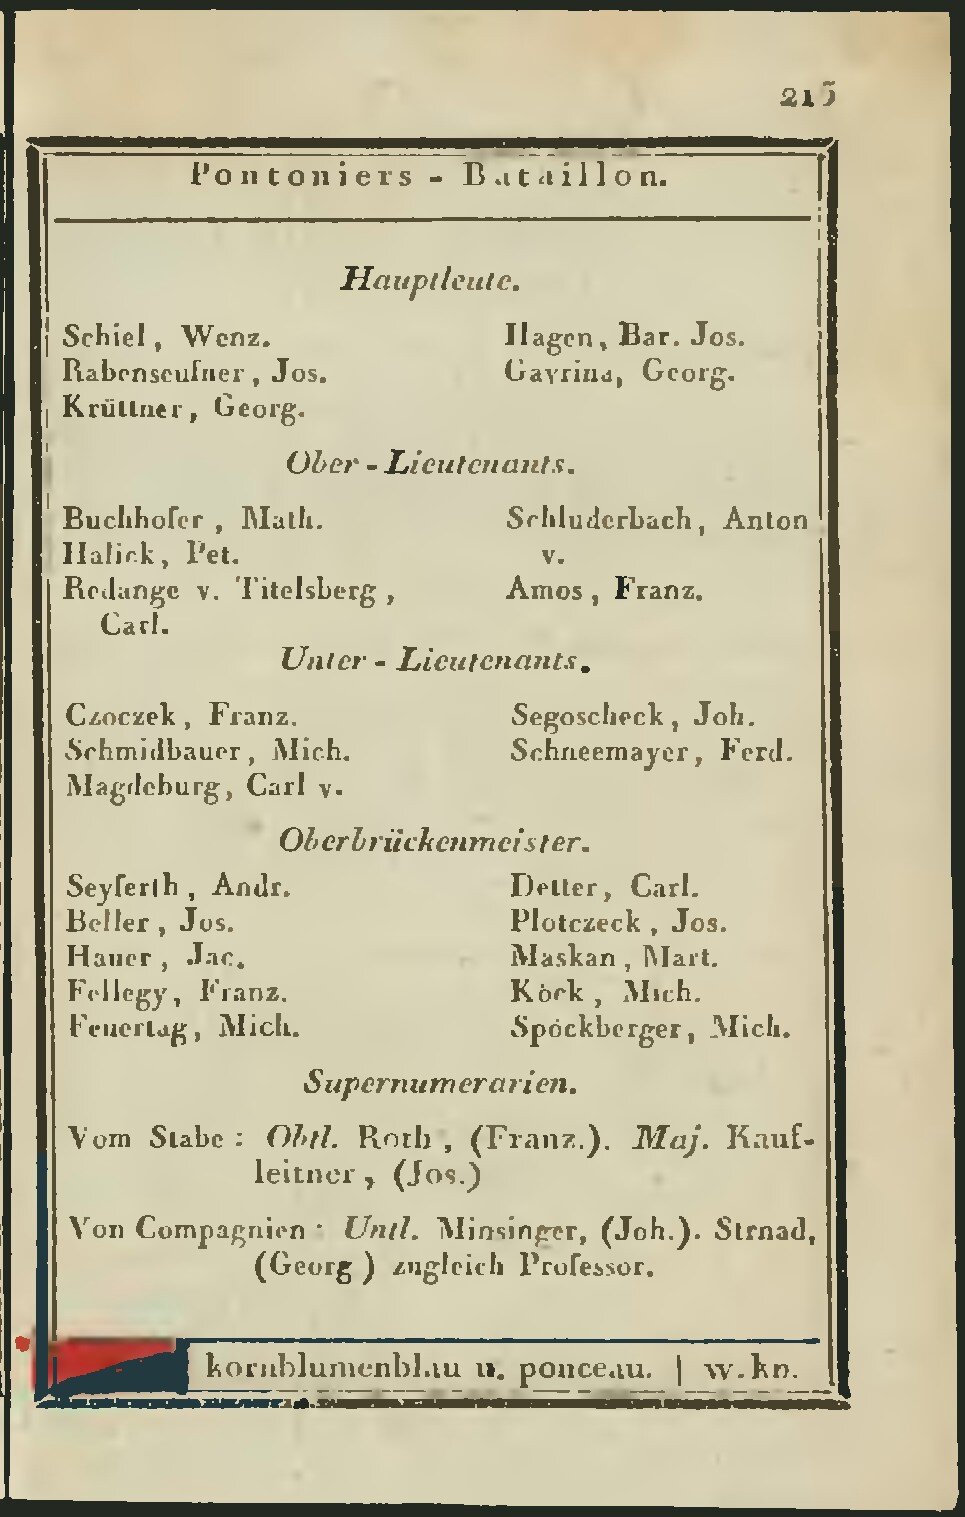 215
Pontoniers - Bataillon.
Hauptleute.
Schiel, Wenz.
Rabenseuſner, Jos.
Krüttner, Georg.
Hagen, Bar. Jos.
Gavrina, Georg.
Ober-Lieutenants.
Buchhofer, Math.
Halick, Pet.
Redange v. Titelsberg,
Carl.
Schluderbach, Anton
v.
Amos, Franz.
Unter-Lieutenants.
Czoczek, Franz.
Schmidbauer, Mich.
Magdeburg, Carl v.
Segoscheck, Joh.
Schneemayer, Ferd.
Oberbrückenmeister.
Seyferth, Andr.
Beller, Jos.
Hauer, Jac.
Fellegy, Franz.
Feuertag, Mich.
Detter, Carl.
Plotczeck, Jos.
Maskan, Mart.
Köck, Mich.
Spöckberger, Mich.
Supernumerarien.
Vom Stabe: Obtl. Roth, (Franz.). Maj. Kauf-
leitner, (Jos.)
Von Compagnien: Untl. Minsinger, (Joh.). Strnad,
(Georg) zugleich Professor.
kornblumenblau u. ponceau. | w. kn.